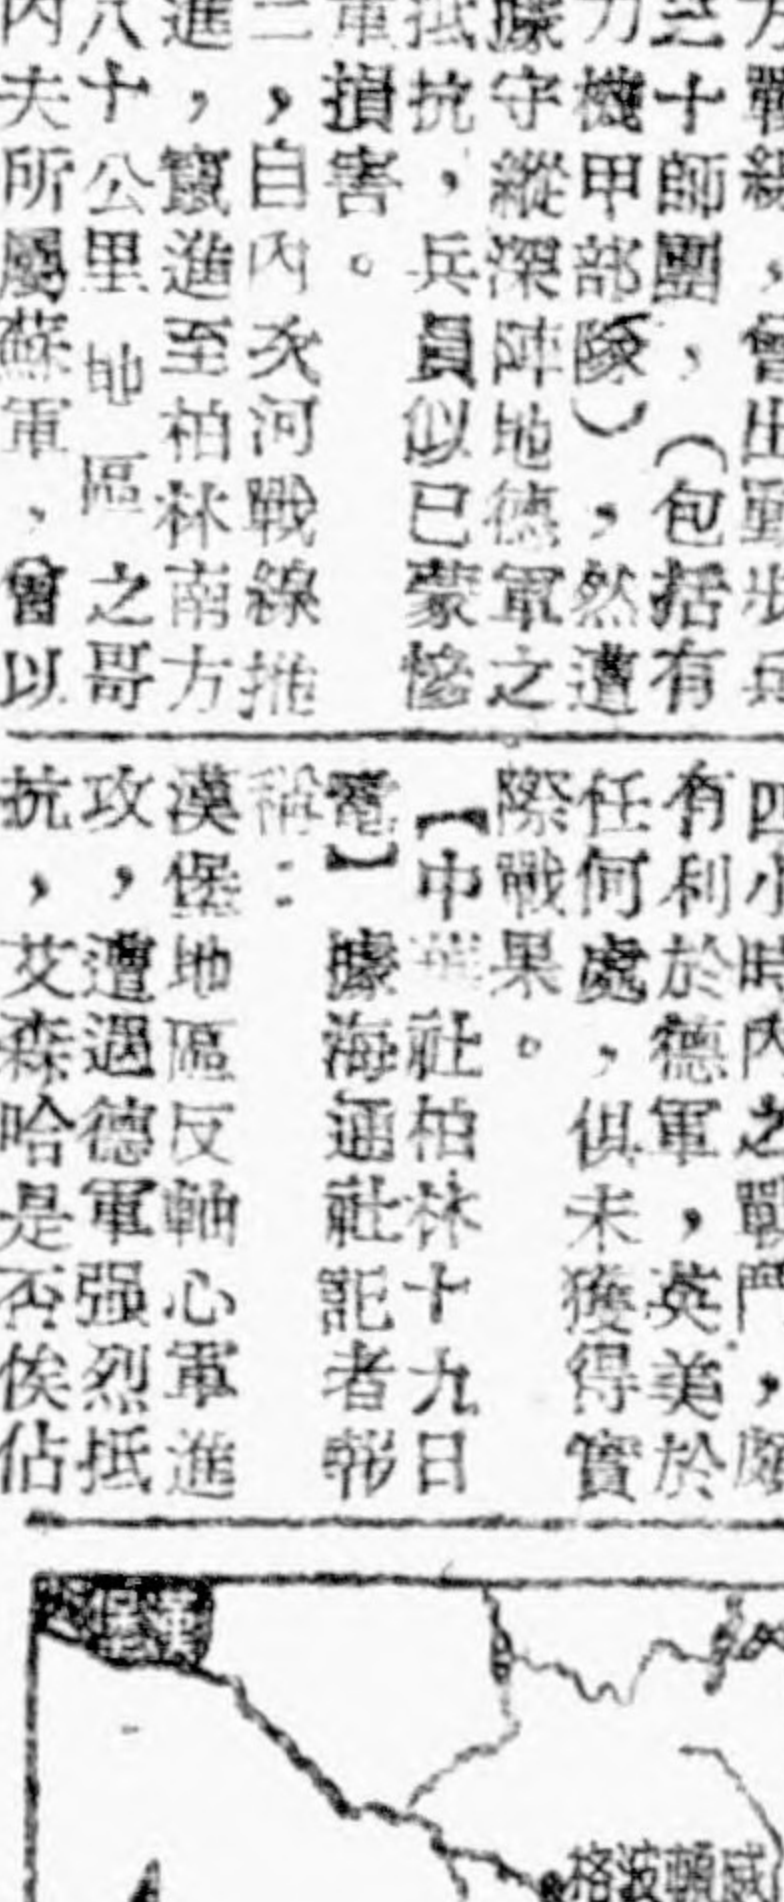 方戰線，曾出動步兵
至十師團，（包括有
力機甲部隊），然遭
據守縱深陣地德軍之
抵抗，兵員似已蒙慘
重損害。
二，自內次河戰線推
進，竄進至柏林南方
八十公里地區之哥
內夫所屬蘇軍，曾以
四小時內之戰鬥，頗
有利於德軍，英美於
任何處，俱未獲得實
際戰果。
【中華社柏林十九日
電】據海通社記者報
稱：
漢堡地區反軸心軍進
攻，遭遇德軍强烈抵
抗，艾森哈是否俟佔
漢堡
威頓波格